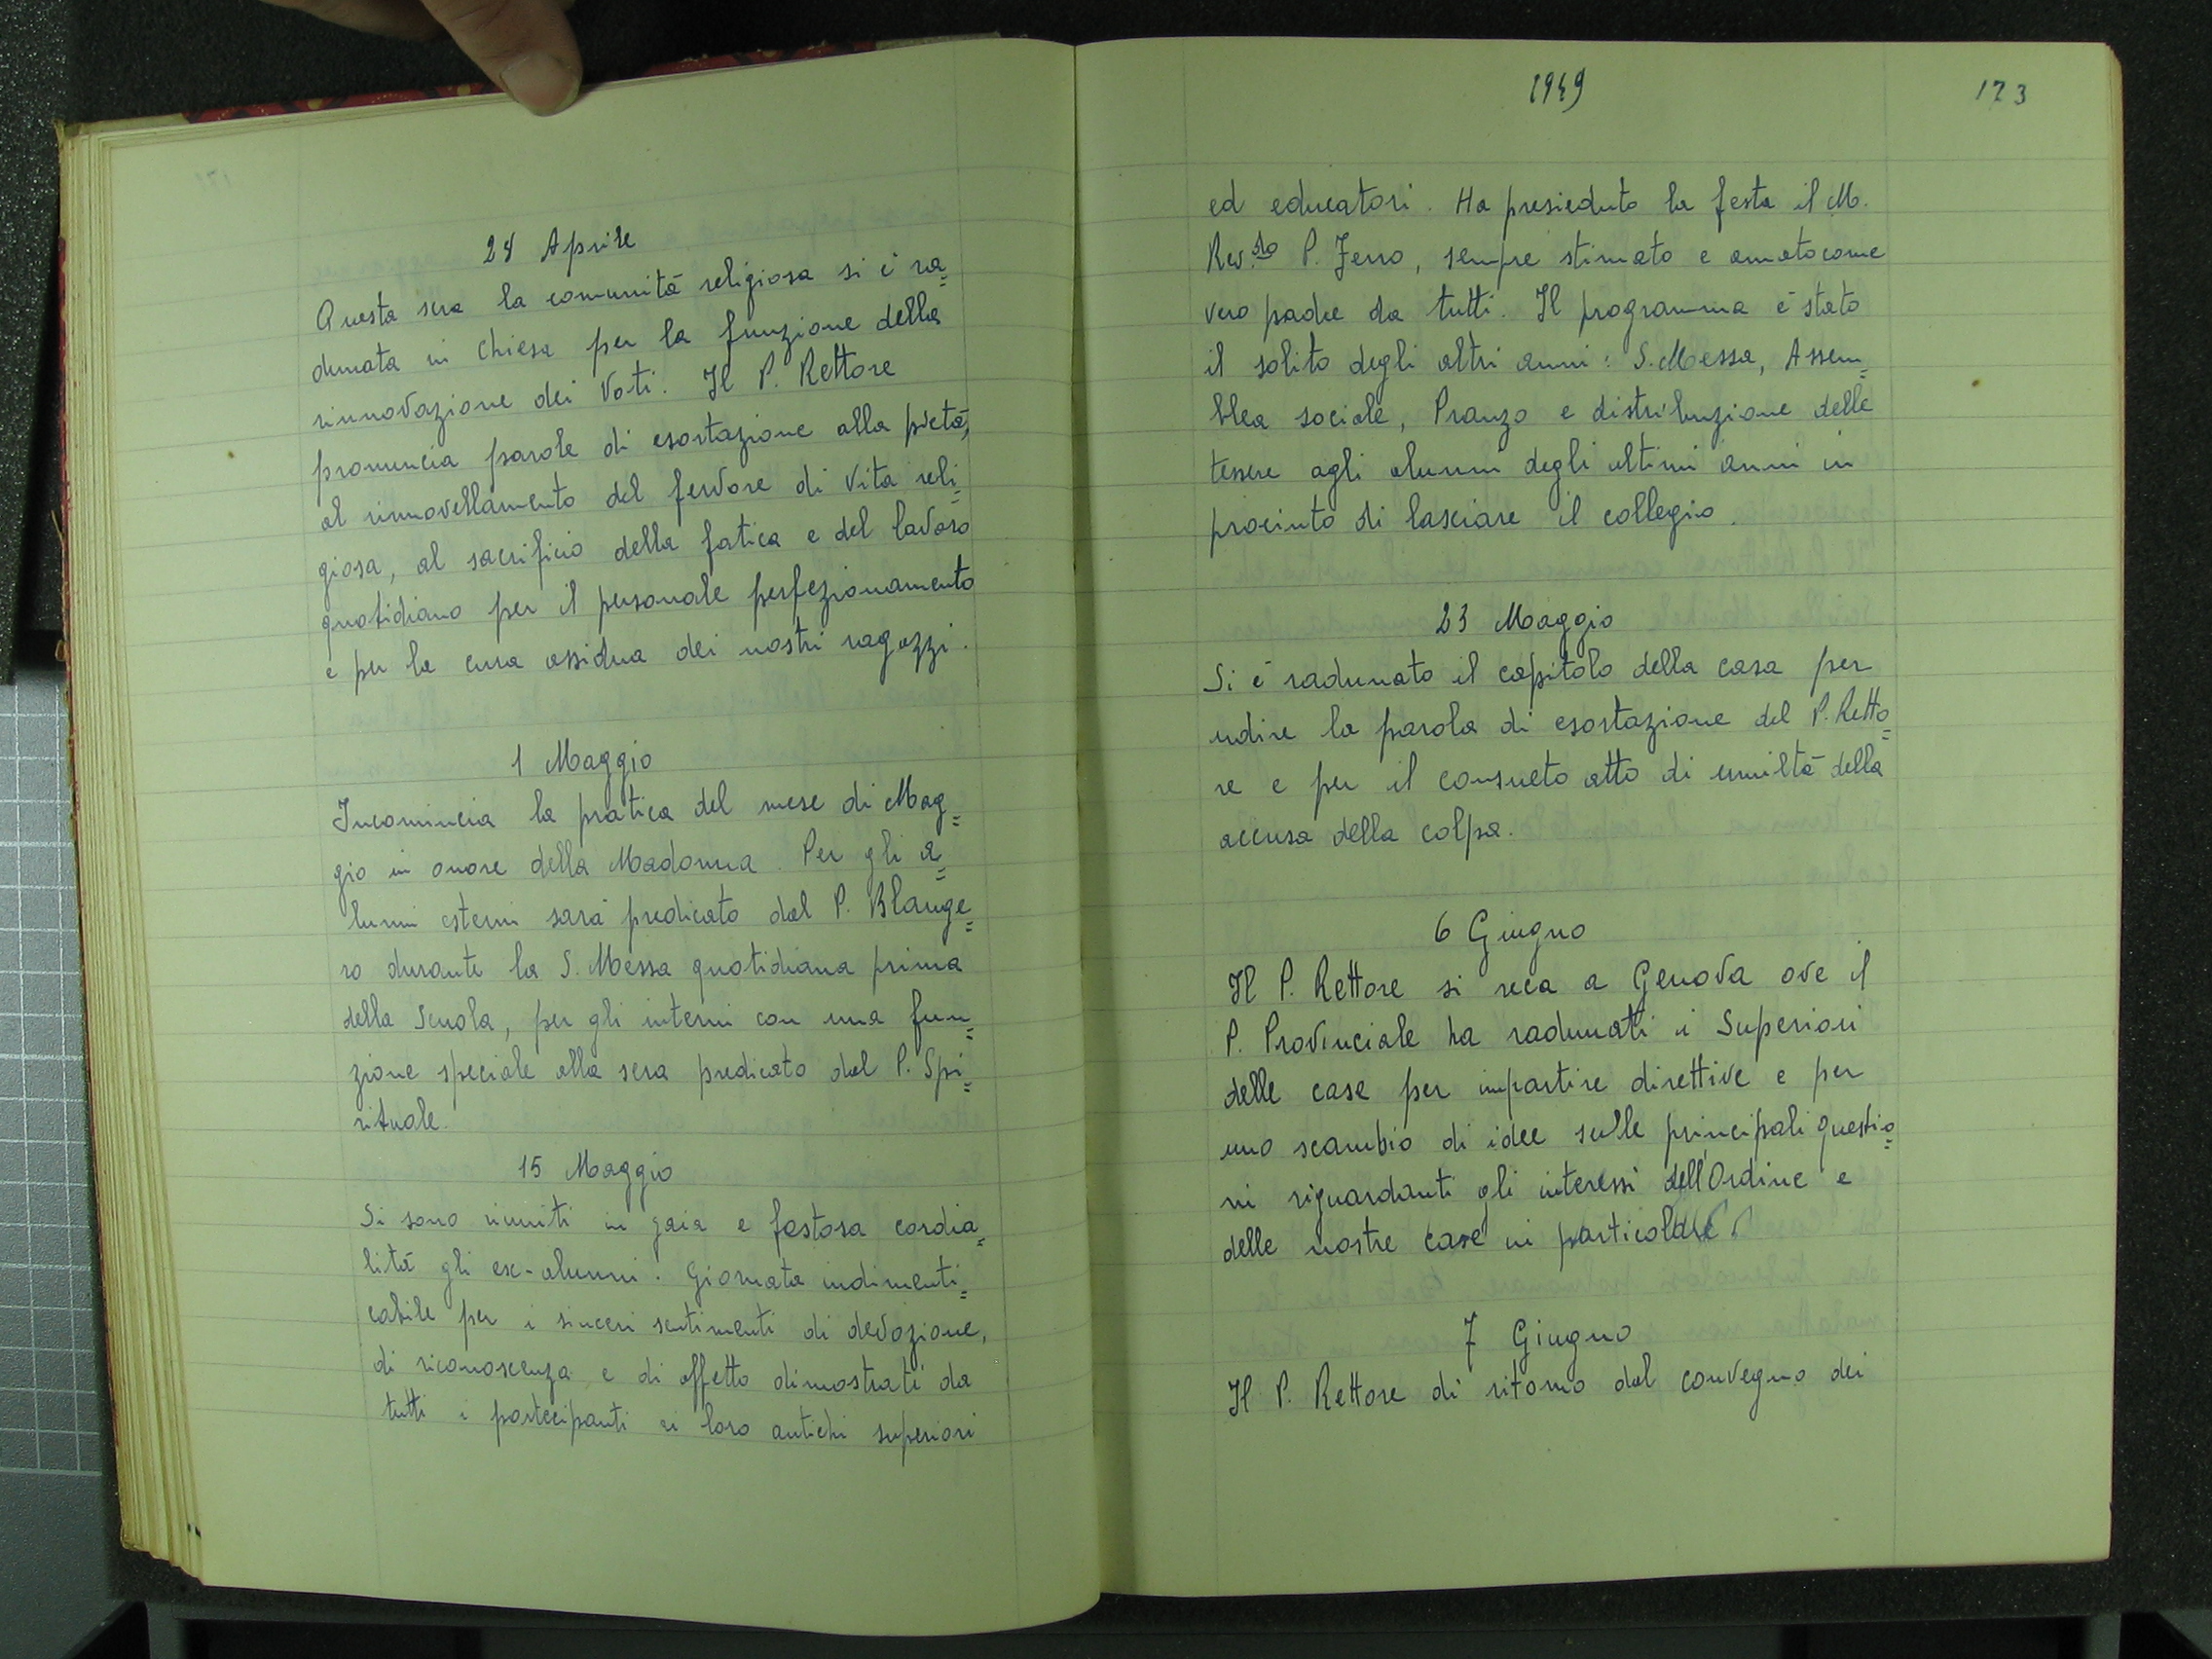 28 Aprile
Questa sera la comunità religiosa si è ra=
dunata in Chiesa per la funzione della
rinnovazione dei Voti. Il P. Rettore
pronuncia parole di esortazione alla pietà,
al rinnovellamento del fervore di vita reli=
giosa, al sacrificio della fatica e del lavoro
quotidiano per il personale perfezionamento
e per la cura assidua dei nostri ragazzi.
1 Maggio
Incomincia la pratica del mese di Mag=
gio in onore della Madonna. Per gli a=
lunni esterni sarà predicato dal P. Blange=
ro durante la S. Messa quotidiana prima
della Scuola, per gli interni con una fun=
zione speciale alla sera predicato dal P. Spi=
rituale.
15 Maggio
Si sono riuniti in gaia e festosa cordia=
lità gli ex-alunni. Giornata indimenti=
cabile per i sinceri sentimenti di devozione,
di riconoscenza e di affetto dimostrati da
tutti i partecipanti ai loro antichi superiori
1949
173
ed educatori. Ha presieduto la festa il M.
Rev.do P. Ferro, sempre stimato e amato come
vero padre da tutti. Il programma è stato
il solito degli altri anni: S. Messa, Assem=
blea sociale, Pranzo e distribuzione delle
tessere agli alunni degli ultimi anni in
procinto di lasciare il collegio.
23 Maggio
Si è radunato il capitolo della casa per
udire la parola di esortazione del P. Retto=
re e per il consueto atto di umiltà della
accusa della colpa.
6 Giugno
Il P. Rettore si reca a Genova ove il
P. Provinciale ha radunati i Superiori
delle case per impartire direttive e per
uno scambio di idee sulle principali questio=
ni riguardanti gli interessi dell'Ordine e
delle nostre case in particolare.
7 Giugno
Il P. Rettore di ritorno dal convegno dei